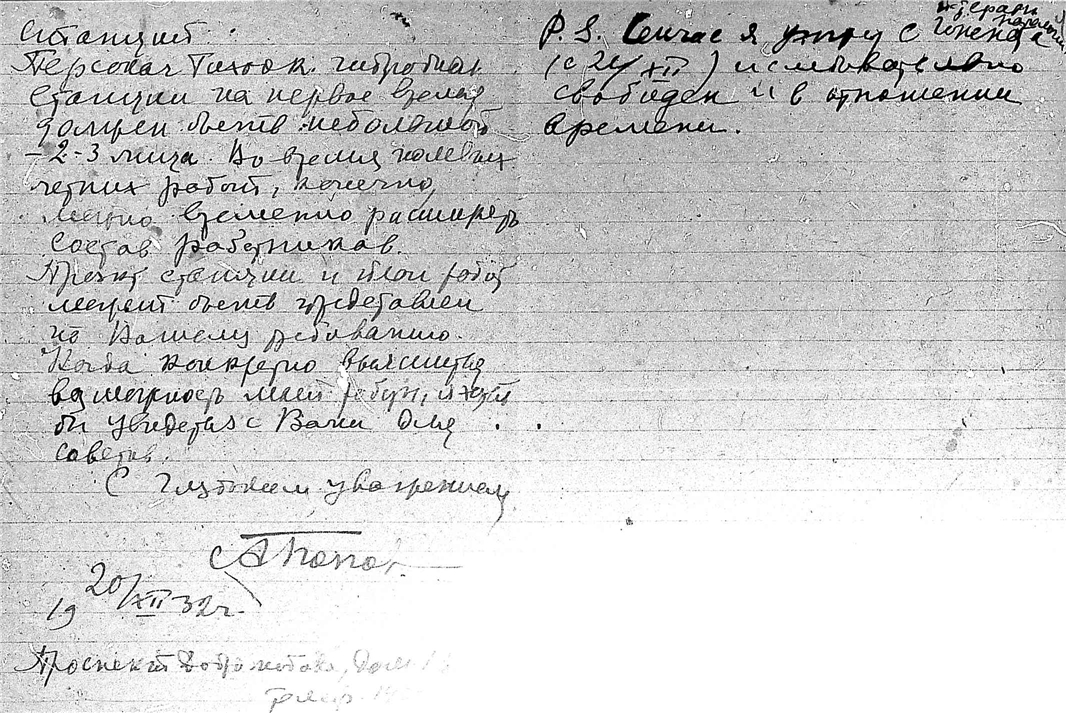 станций.
Персонал Тихоок. гидробиол.
станции на первое время
должен быть небольшой
– 2-3 лица. Во время
летних работ, конечно,
можно временно расширять
состав работников.
Проект станции и план работ
может быть представлен
по Вашему требованию.
Когда конкретно выяснится
возможность моей работы, я хотел
бы увидеться с Вами для
совета.
С глубоким уважением
А Попов.
19 20/XII 32 г.
Проспект Добролюбова, дом
P. S. Сейчас я ухожу с
(с 21/XII) и следовательно
свободен и в отношении
времени.